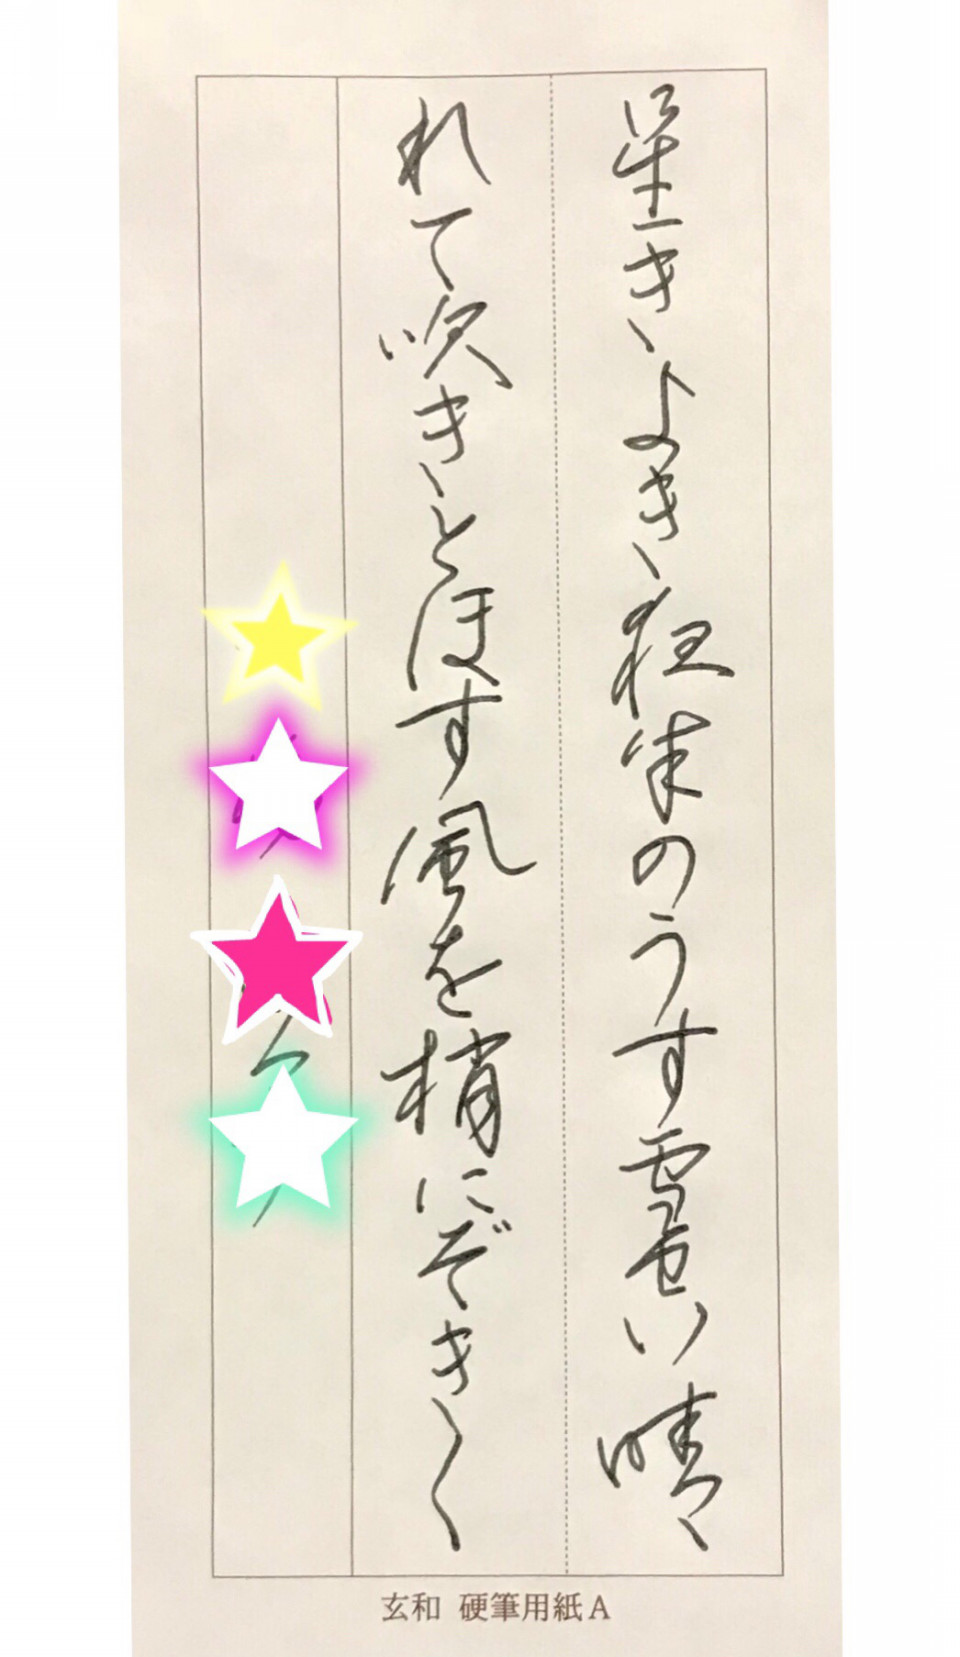 星きよき夜半のうす雪空晴
れて吹きとほす風を梢にぞきく
玄和 硬筆用紙A